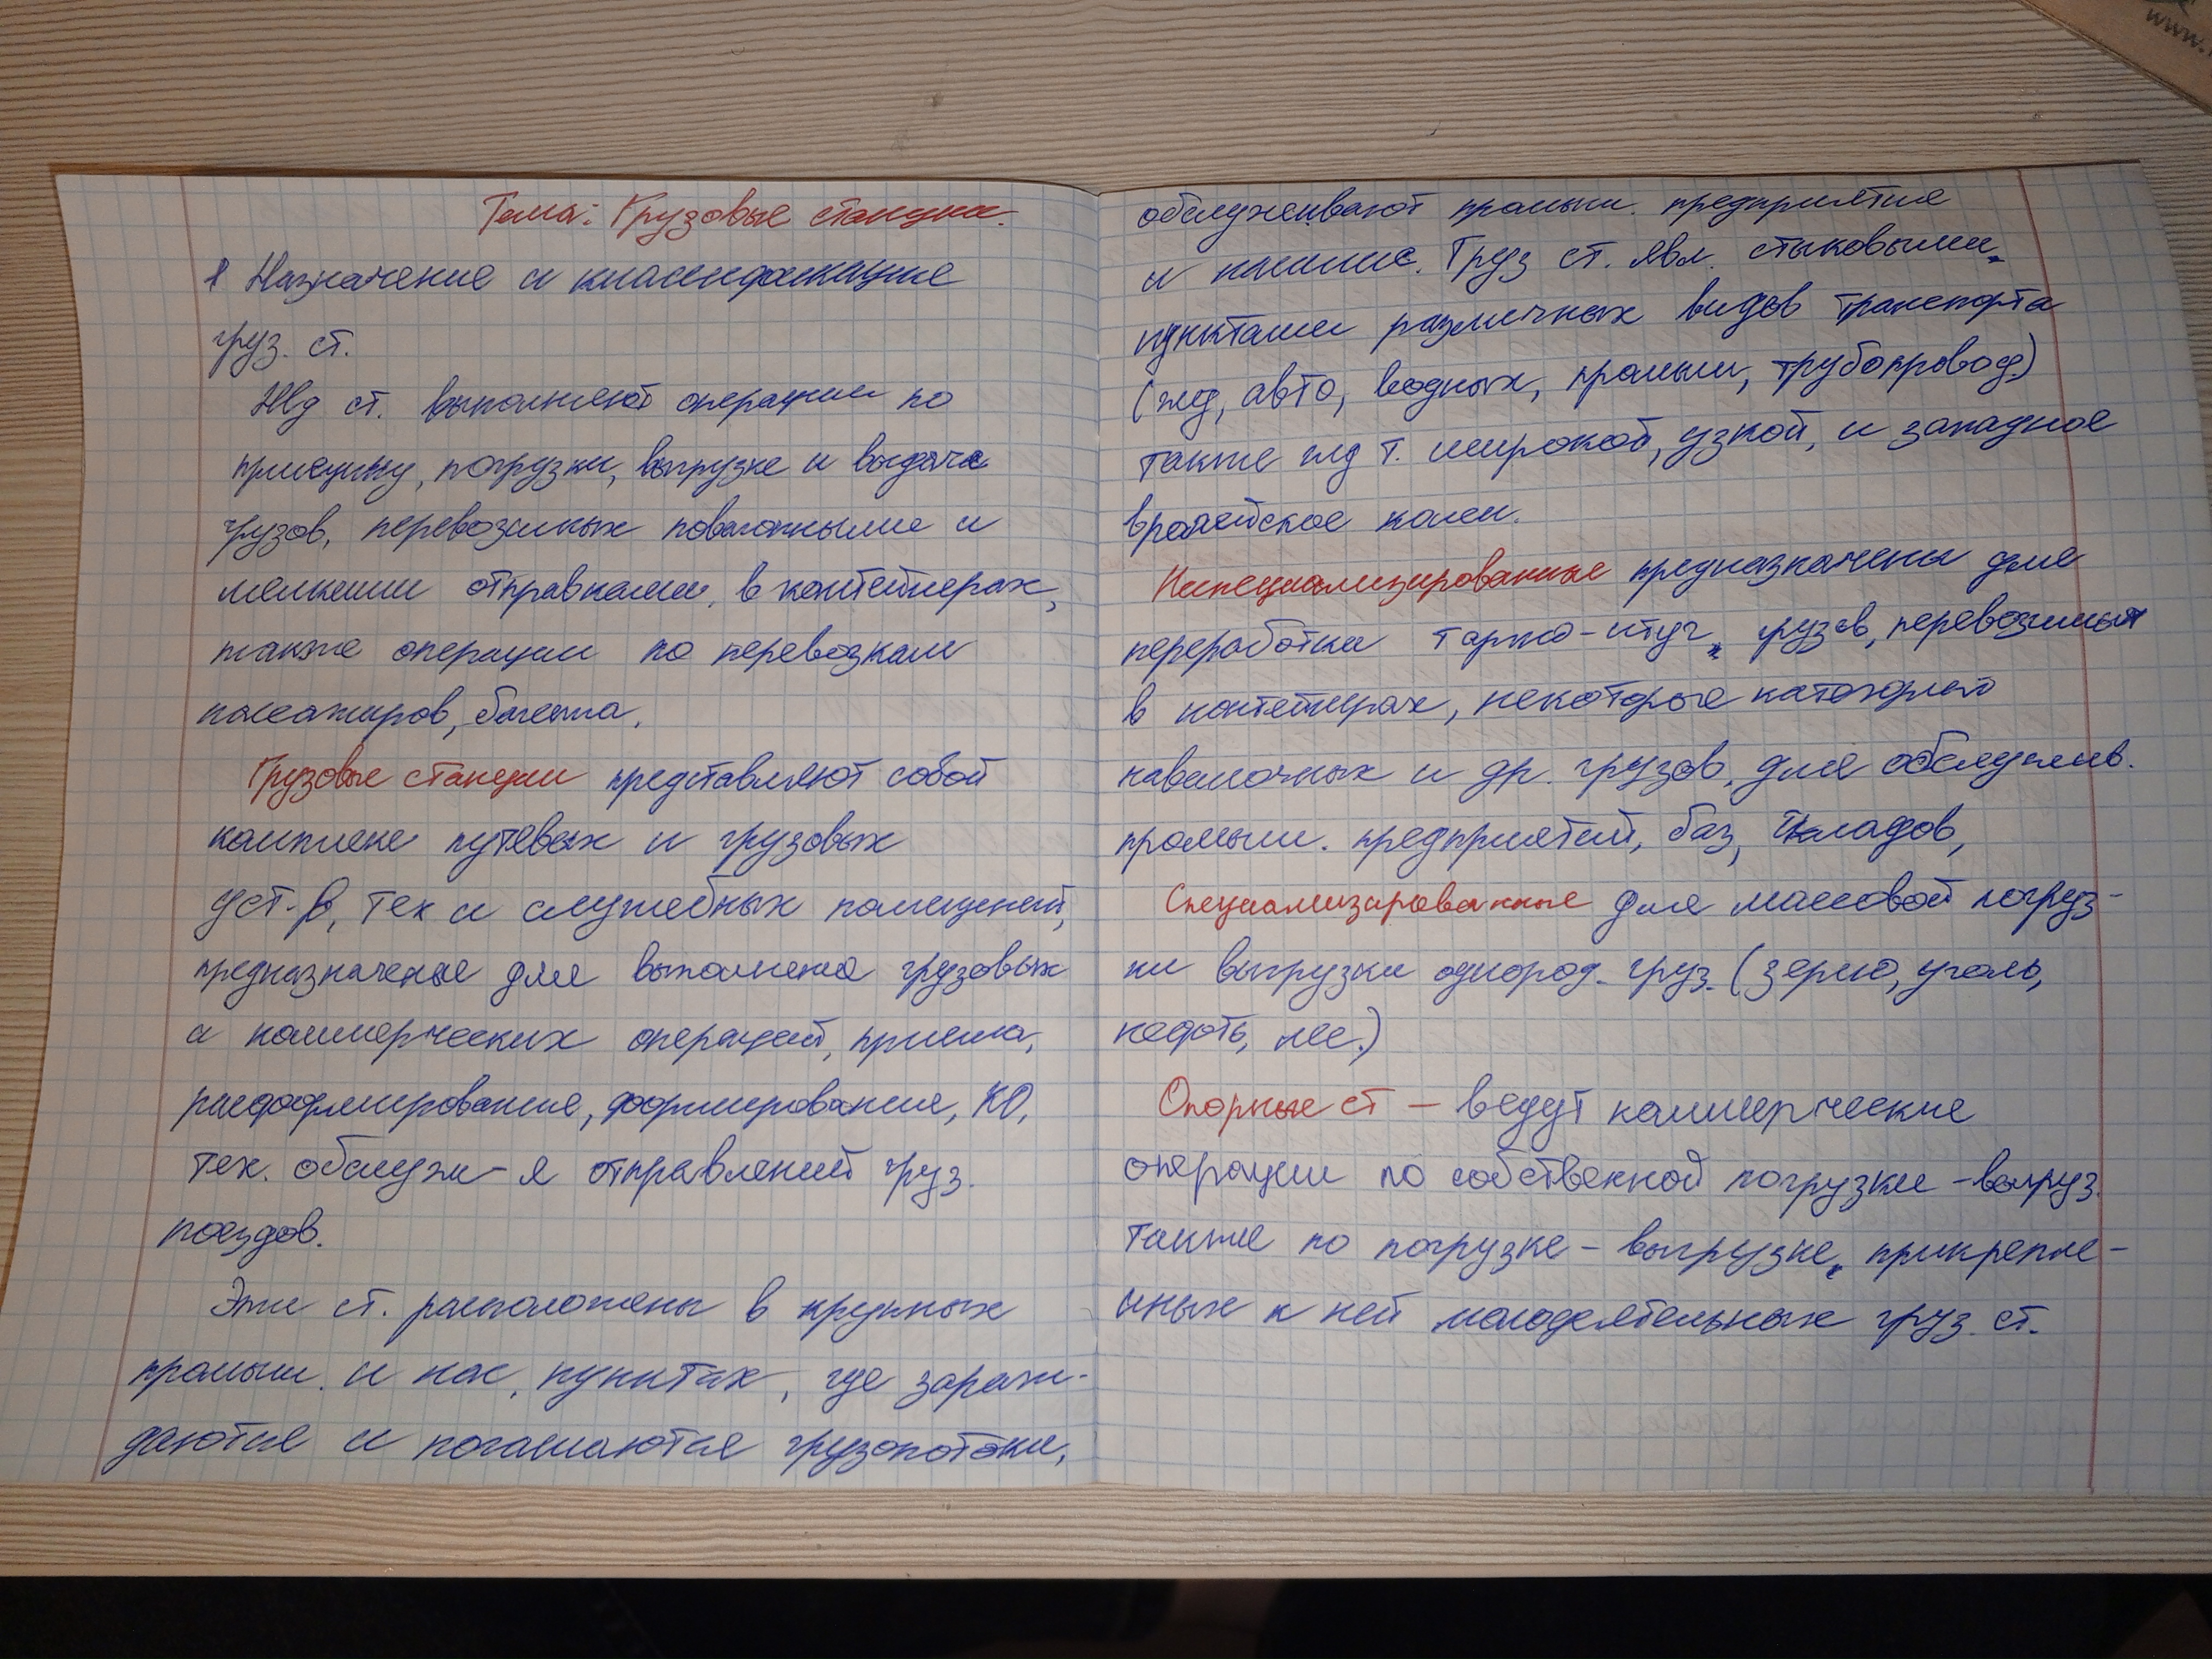 Тема: Грузовые станции.
1 Назначение и классификация
груз. ст.
Жд ст. выполняют операции по
приёму, погрузки, выгрузке и выдаче
грузов, перевозимых повагонными и
мелкими отправками, в контейнерах,
также операции по перевозкам
пассажиров, багажа.
Грузовые станции представляют собой
комплекс путевых и грузовых
уст-в, тех и служебных помещений,
предназначеные для выполнения грузовых
и коммерческих операций, приема,
расформирования, формирования, КО,
тех. обслуж-я отправлений груз.
поездов.
Эти ст. расположены в крупных
промыш. и нас. пунктах, где зарож-
даются и погашаются грузопотоки,
обслуживают промыш. предприятия
и Груз ст. явл. стыковыми
пунктами различных видов транспорта
(жд, авто, водных, промыш, трубопровод)
также жд т. широкой, узкой, и западное
колеи.
Неспециализированные предназначены для
переработки тарно-штуч грузов, перевозимых
в контейнерах, некоторые категорий
навалочных и др. грузов, для обслужив.
промыш. предприятий, баз, складов,
Специализированные для массовой погруз-
ки выгрузки однород. груз. (зерно, уголь,
нефть, лес.)
Опорные ст – ведут коммерческие
операции по собственной погрузки-выгруз.
также по погрузке-выгрузке прикрепле-
нных к ней малодеятельных груз. ст.
www.